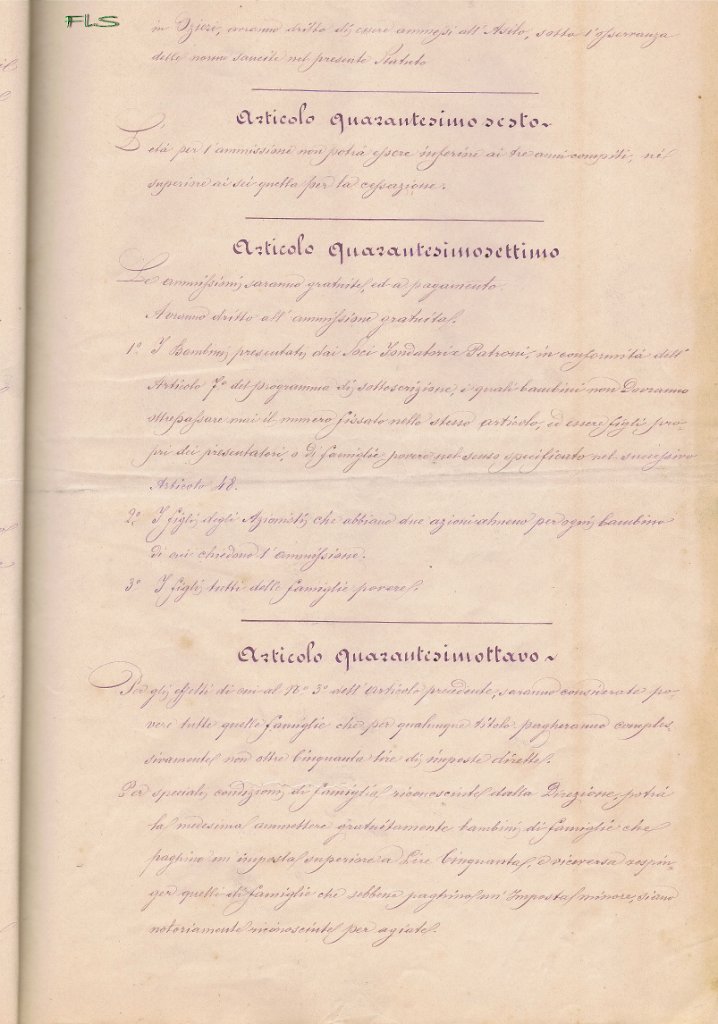 FLS
in Ozieri, avranno dritto di essere ammessi all'Asilo, sotto l'osservanza
delle norme sancite nel presente Statuto
Articolo Quarantesimosesto~
L'età per l'ammissione non potrà essere inferiore ai tre anni compiti, nè
superiore ai sei quella per la cessazione.
Articolo Quarantesimosettimo
Le ammissioni saranno gratuite, ed a pagamento.
Avranno dritto all'ammissione gratuita.
1º I Bambini presentati dai Soci Fondatori e Patroni, in conformità dell'
Articolo 7º del programma di sottoscrizione, i quali bambini non dovranno
oltrepassare mai il numero fissato nello stesso articolo, ed essere figli pro-
pri dei presentatori, o di famiglie povere nel senso specificato nel successivo
Articolo 48.
2º I figli degli Azionisti che abbiano due azioni almeno per ogni bambino
di cui chiedono l'ammissione.
3º I figli tutti delle famiglie povere.
Articolo Quarantesimottavo~
Per gli effetti di cui al Nº 3º dell'articolo precedente, saranno considerate po-
vere tutte quelle famiglie che per qualunque titolo pagheranno comples
sivamente non oltre Cinquanta lire di imposte dirette.
Per speciali condizioni di famiglia riconosciute dalla Direzione, potrà
la medesima ammettere gratuitamente bambini di famiglie che
paghino un imposta superiore a Lire Cinquanta, e viceversa respin-
ger quelli di famiglie che sebbene paghino un'Imposta minore, siano
notoriamente riconosciute per agiate.